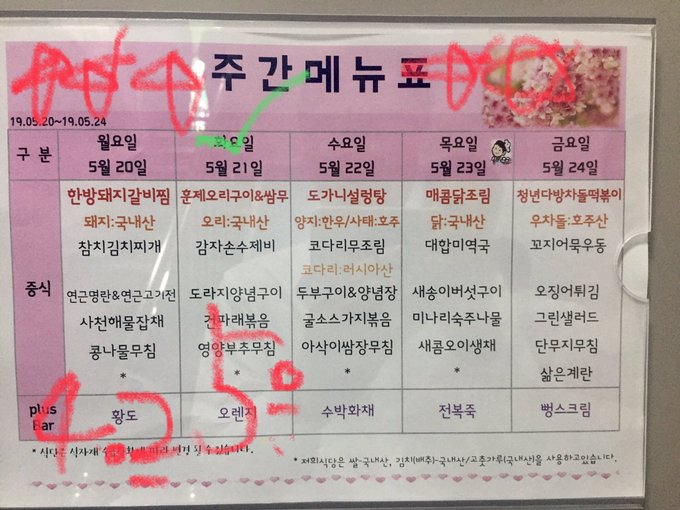 주간메뉴표
19.05.20~19.05.24
구 분 월요일 화요일 수요일 목요일 금요일
5월 20일 5월 21일 5월 22일 5월 23일 5월 24일
중식
한방돼지갈비찜 훈제오리구이&쌈무 도가니설렁탕 매콤닭조림 청년다방차돌떡볶이
돼지:국내산 오리:국내산 양지:한우/사태:호주 닭:국내산 우차돌:호주산
참치김치찌개 감자손수제비 코다리무조림 대합미역국 꼬지어묵우동
코다리:러시아산
연근명란&연근고기전 도라지양념구이 두부구이&양념장 새송이버섯구이 오징어튀김
사천해물잡채 건파래볶음 굴소스가지볶음 미나리숙주나물 그린샐러드
콩나물무침 영양부추무침 아삭이쌈장무침 새콤오이생채 단무지무침
* * * * 삶은계란
plus Bar 황도 오렌지 수박화채 전복죽 뻥스크림
* 식당은 식자재 변경 될 수 있습니다.
* 저희식당은 쌀-국내산, 김치(배추)-국내산/고춧가루(국내산)을 사용하고있습니다.